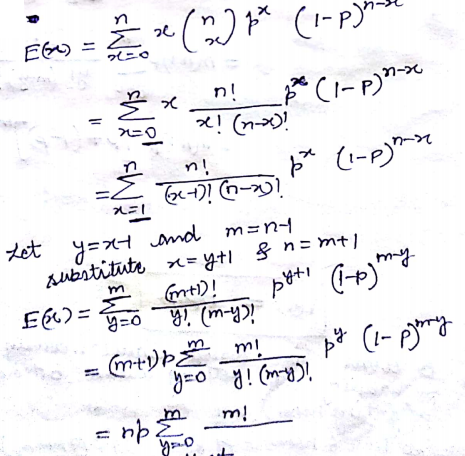 E(x) = n∑x=0 x (n x) p^x (1-p)^{n-x}
= n∑x=0 x n!/x! (n-x)! p^x (1-p)^{n-x}
= n∑x=1 n!/(x-1)! (n-x)! p^x (1-p)^{n-x}
Let y=x-1 and m=n-1
substitute x=y+1 & n=m+1
E(x) = m∑y=0 (m+1)!/y! (m-y)! p^{y+1} (1-p)^{m-y}
= (m+1)p m∑y=0 m!/y! (m-y)! p^y (1-p)^{m-y}
= np m∑y=0 m!/